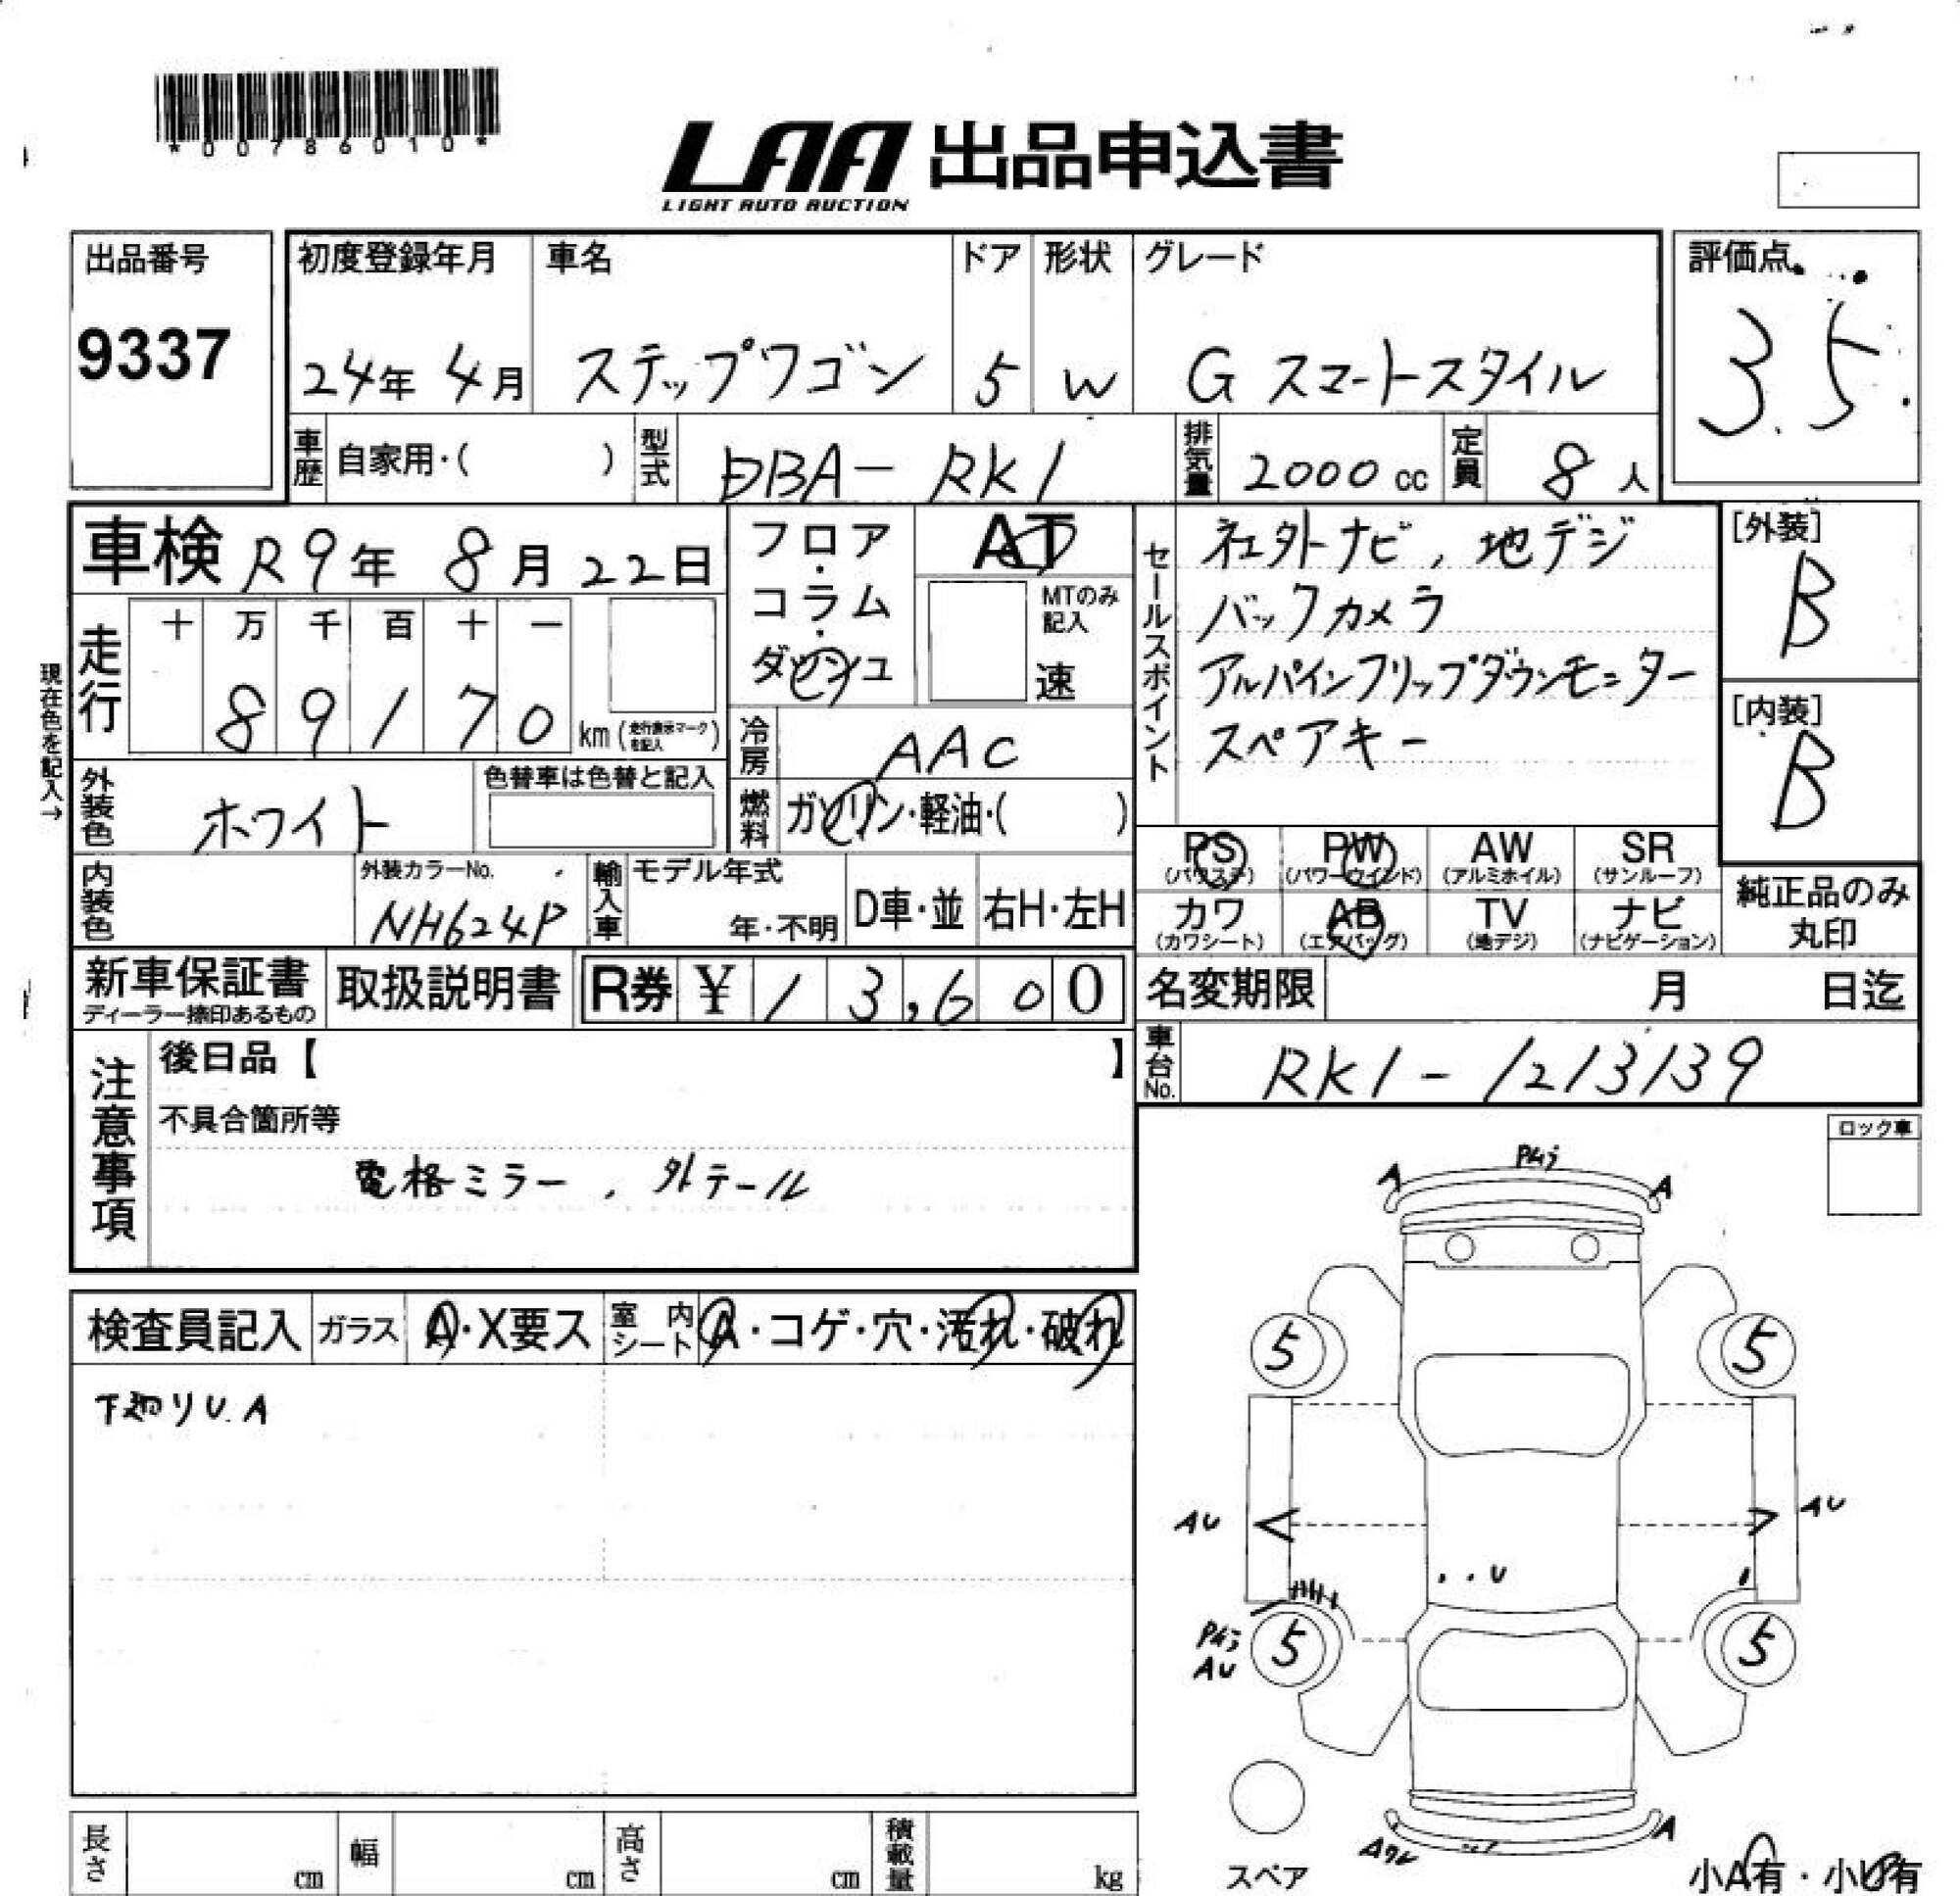 *00786010*
LAA 出品申込書
LIGHT AUTO AUCTION
出品番号
9337
初度登録年月
24年 4月
車名
ステップワゴン
ドア
5
形状
W
グレード
G スマートスタイル
評価点
3.5
車歴
自家用・( )
型式
DBA- RK1
排気量
2000 cc
定員
8 人
車検 R9年 8月 22日
走行
十 万 千 百 十 一
8 9 1 7 0 km
現在色を記入→
フロア・コラム・ダッシュ
AT
MTのみ
記入
速
冷房
AAC
燃料
ガソリン・軽油・( )
外装色
ホワイト
色替車は色替と記入
内装色
外装カラーNo.
NH624P
輸入車
モデル年式
年・不明
D車・並
右H・左H
セールスポイント
社外ナビ, 地デジ
バックカメラ
アルパインフリップダウンモニター
スペアキー
[外装]
B
[内装]
B
PS PW AW SR
(パワステ) (パワーウインド) (アルミホイル) (サンルーフ)
カワ AB TV ナビ
(カワシート) (エアバッグ) (地デジ) (ナビゲーション)
純正品のみ
丸印
新車保証書
ディーラー捺印あるもの
取扱説明書
R券 ¥ 1 3,6 0 0
名変期限 月 日迄
車台No.
RK1-1213139
注意事項
後日品【 】
不具合箇所等
電格ミラー, 外テール
検査員記入
ガラス
A・X要ス
室内シート
A・コゲ・穴・汚れ・破れ
下廻りU.A
ロック車
A A
5 5
AU AU
U
AU
5 5
A
スペア
小A有・小U有
長さ cm
幅 cm
高さ cm
積載量 kg